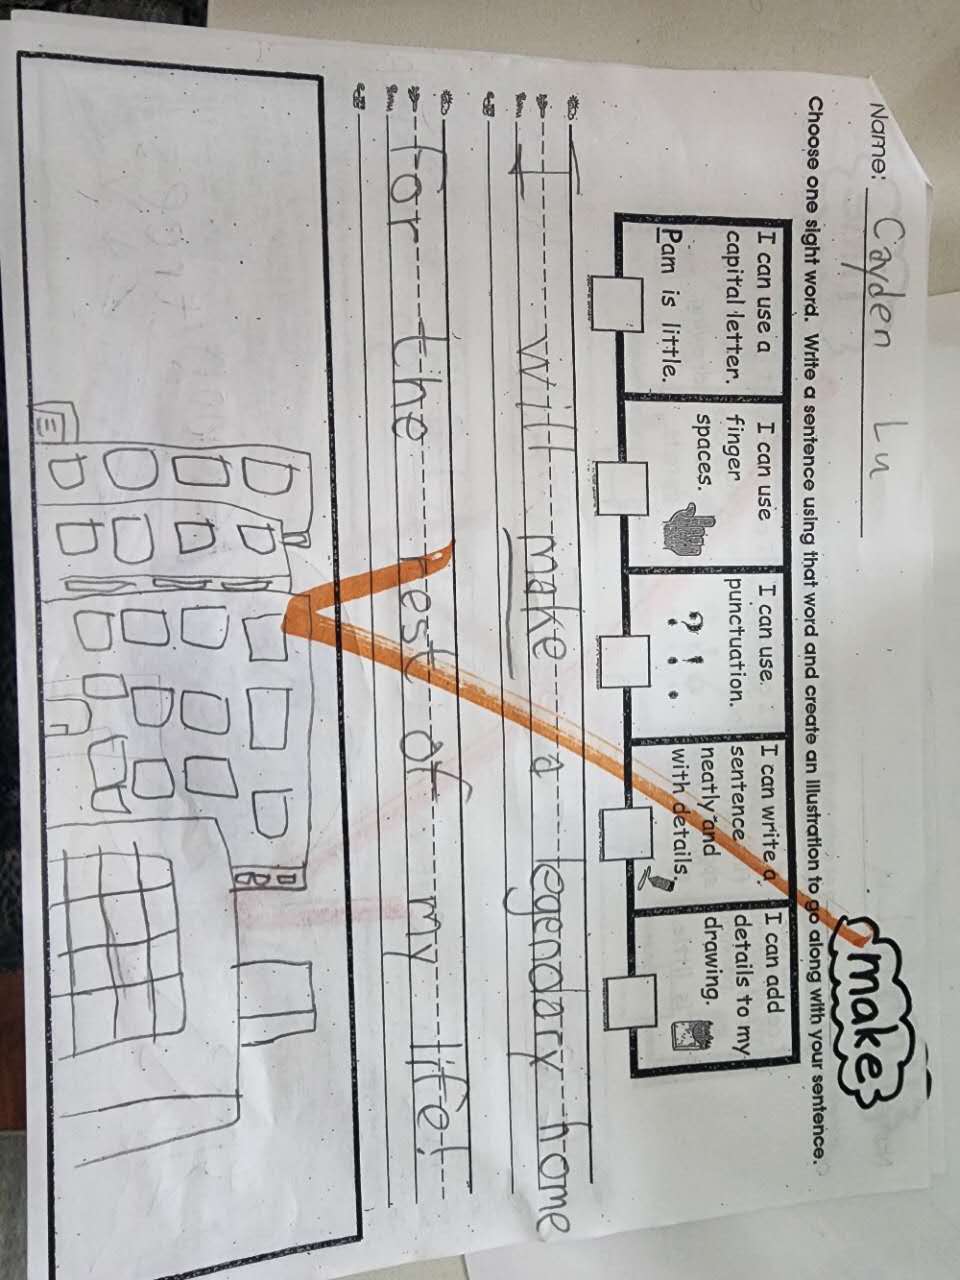 Name: Cayden Lu
make
Choose one sight word. Write a sentence using that word and create an illustration to go along with your sentence.
I can use a capital letter.
Pam is little.
I can use finger spaces.
I can use punctuation.
? ! .
I can write a sentence neatly and with details.
I can add details to my drawing.
I will make a legendary home
for the rest of my life!